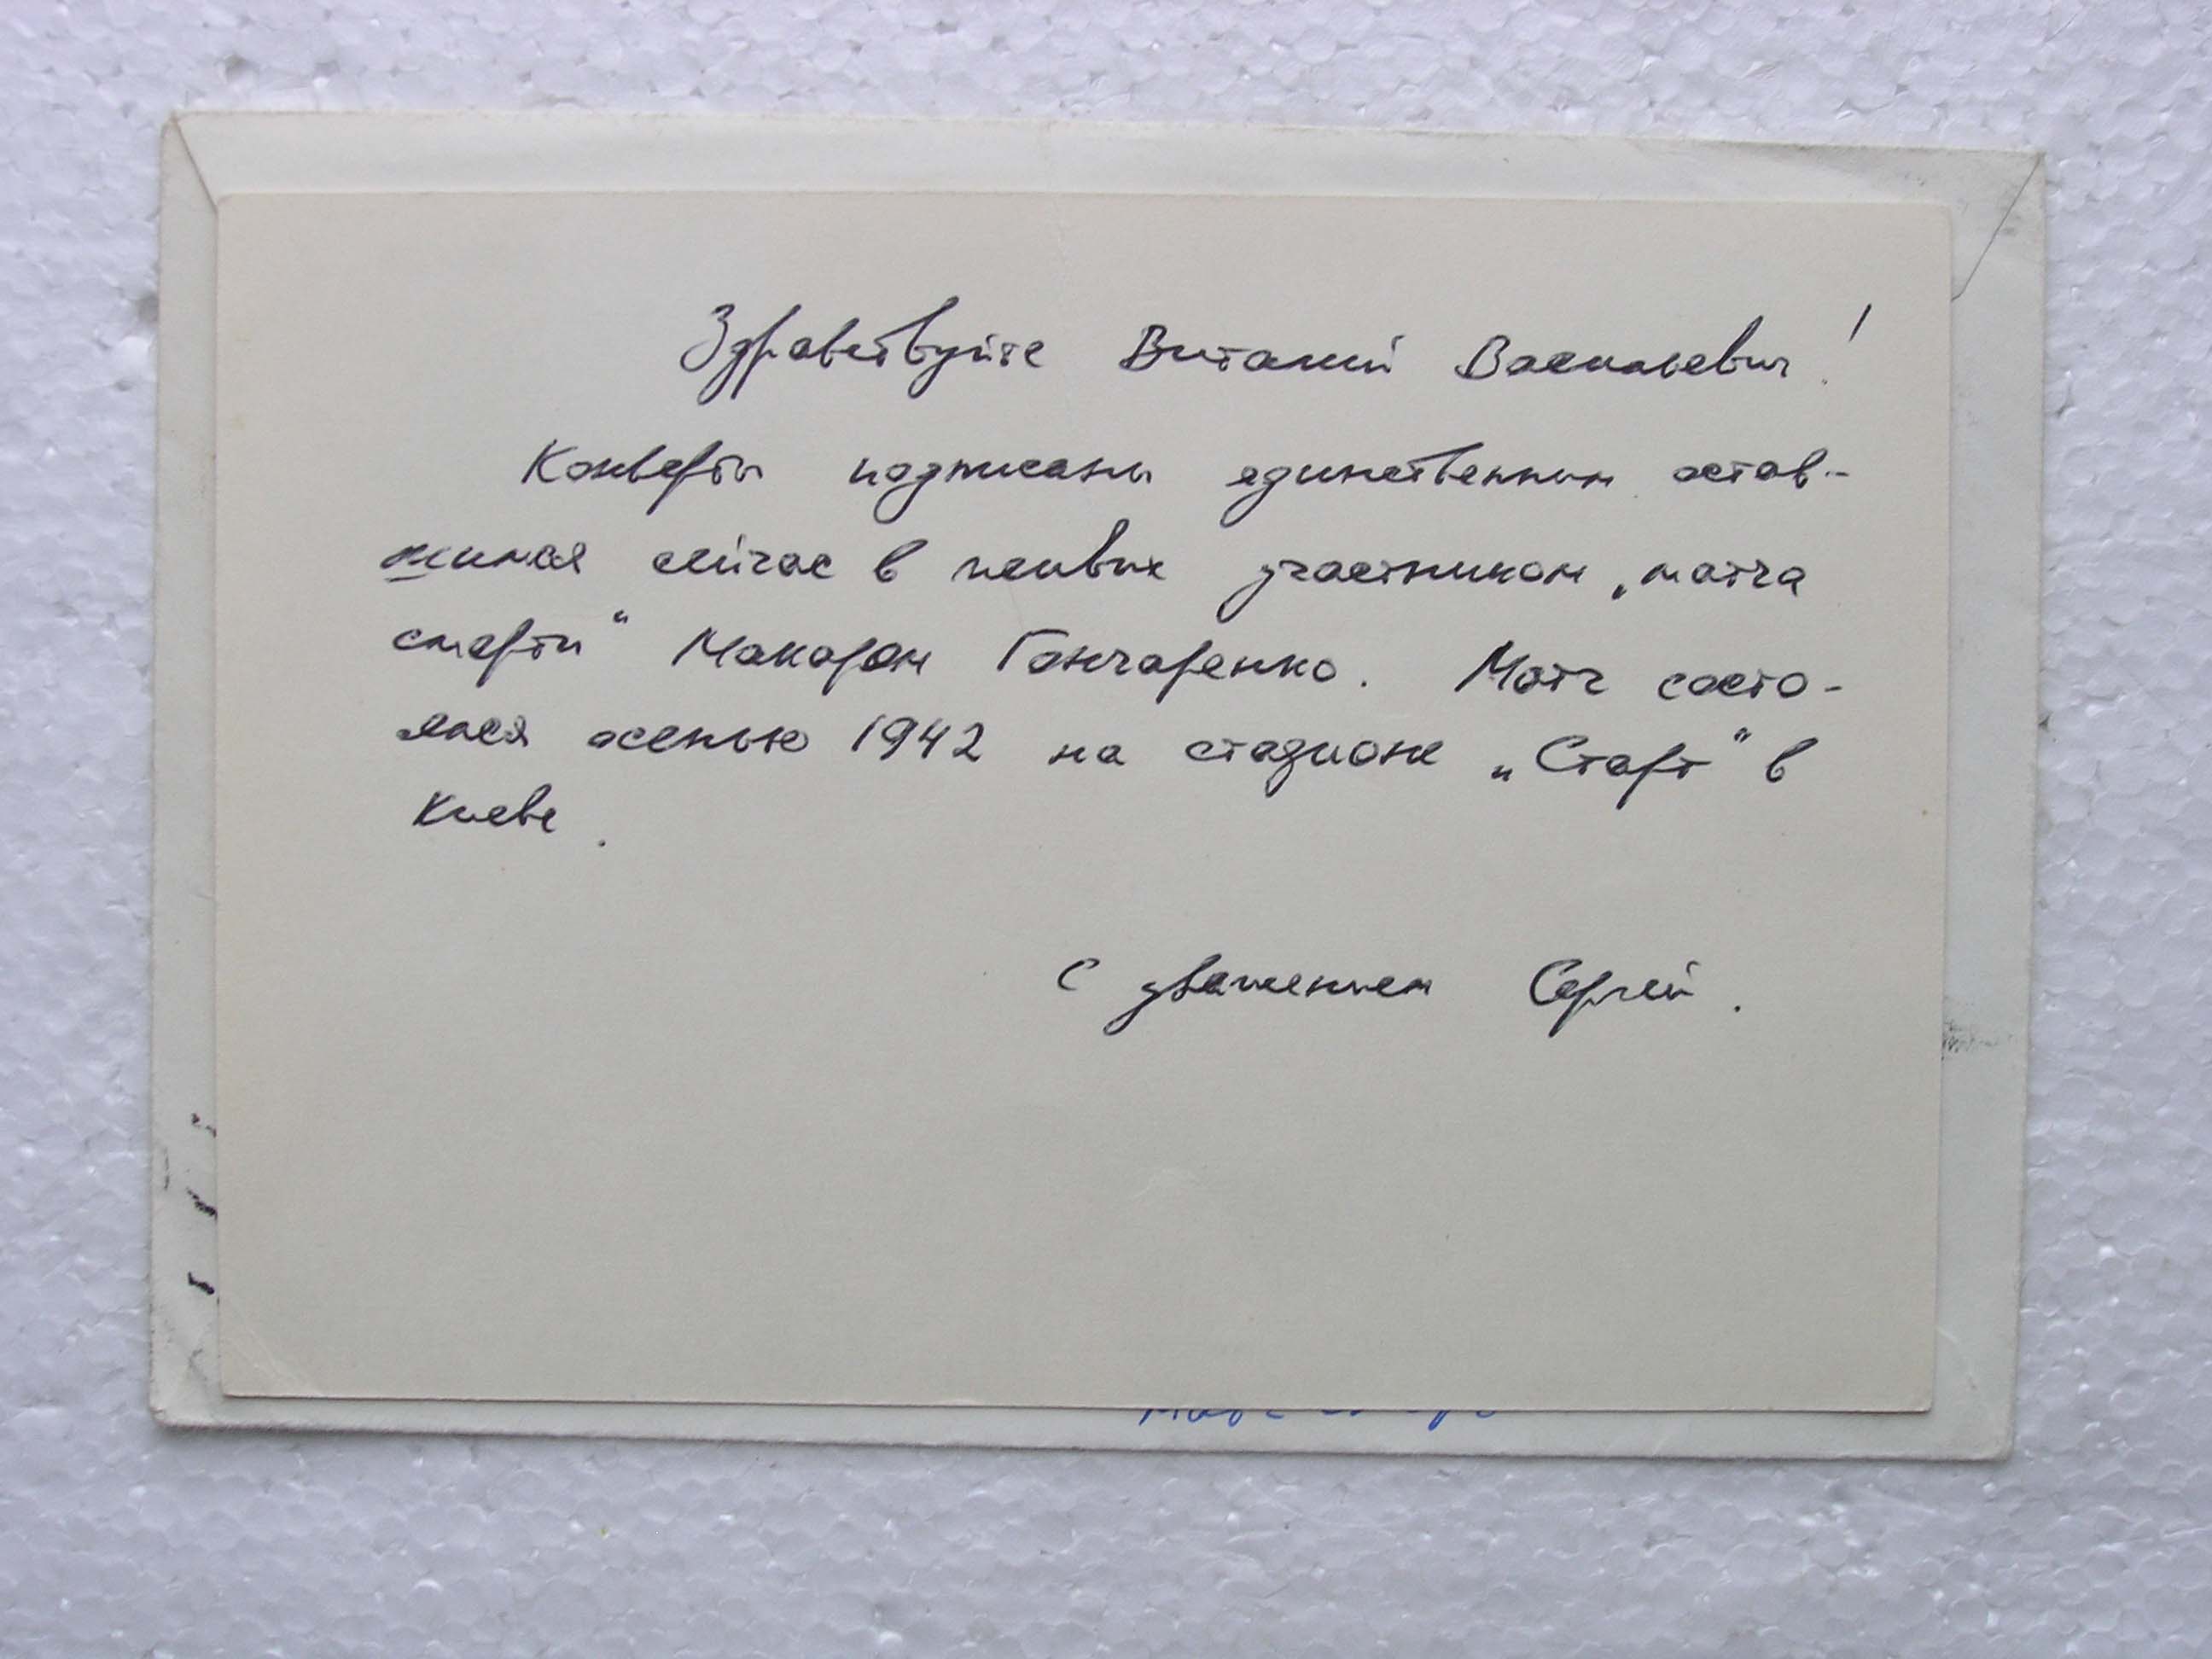 Здравствуйте Виталий Васильевич!
Конверты подписаны единственным остав-
шимся сейчас в живых участником „матча
смерти“ Макаром Гончаренко. Матч состо-
ялся осенью 1942 на стадионе „Старт“ в
Киеве.
С уважением Сергей.